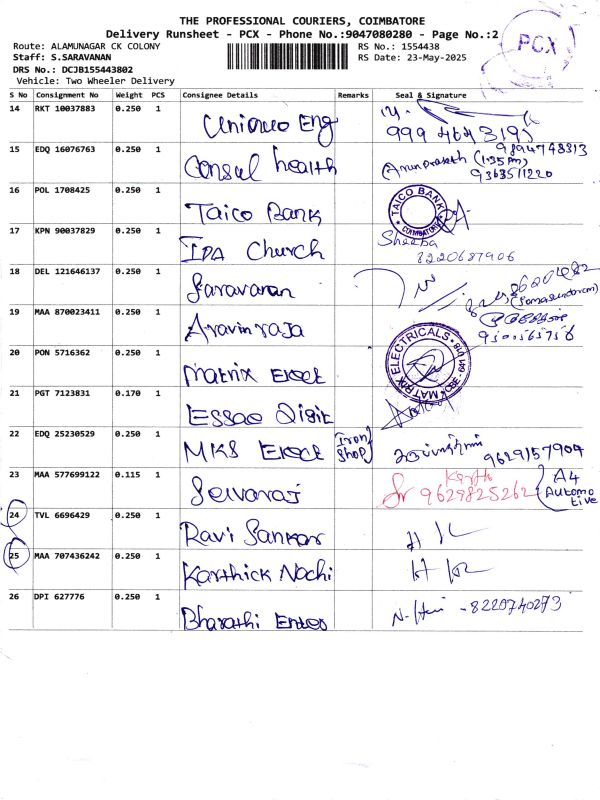 THE PROFESSIONAL COURIERS, COIMBATORE
Delivery Runsheet - PCX - Phone No.:9047080280 - Page No.:2
PCX
Route: ALAMUNAGAR CK COLONY
RS No.: 1554438
Staff: S.SARAVANAN
RS Date: 23-May-2025
DRS No.: DCJB155443802
Vehicle: Two Wheeler Delivery
S No Consignment No Weight PCS Consignee Details Remarks Seal & Signature
14 RKT 10037883 0.250 1
15 EDQ 16076763 0.250 1 Consul health Arunprasath (1:35 Pm) 9894748313
9363511220
16 POL 1708425 0.250 1 Taico Bank TAICO BANK COIMBATORE
17 KPN 90037829 0.250 1 IPA Church Sheeba
8220687906
18 DEL 121646137 0.250 1 Saravanan
19 MAA 870023411 0.250 1 Aravinraja
20 PON 5716362 0.250 1 Matrix Elect MATRIX ELECTRICALS
21 PGT 7123831 0.170 1 Essae Digit
22 EDQ 25230529 0.250 1 MKS Elect Iron Shop 9629157904
23 MAA 577699122 0.115 1 Selvaraj 9629825262 A4 Automotive
24 TVL 6696429 0.250 1 Ravi Sankar
25 MAA 707436242 0.250 1 Karthick Nachi
26 DPI 627776 0.250 1 Bharathi Enter 8220740273